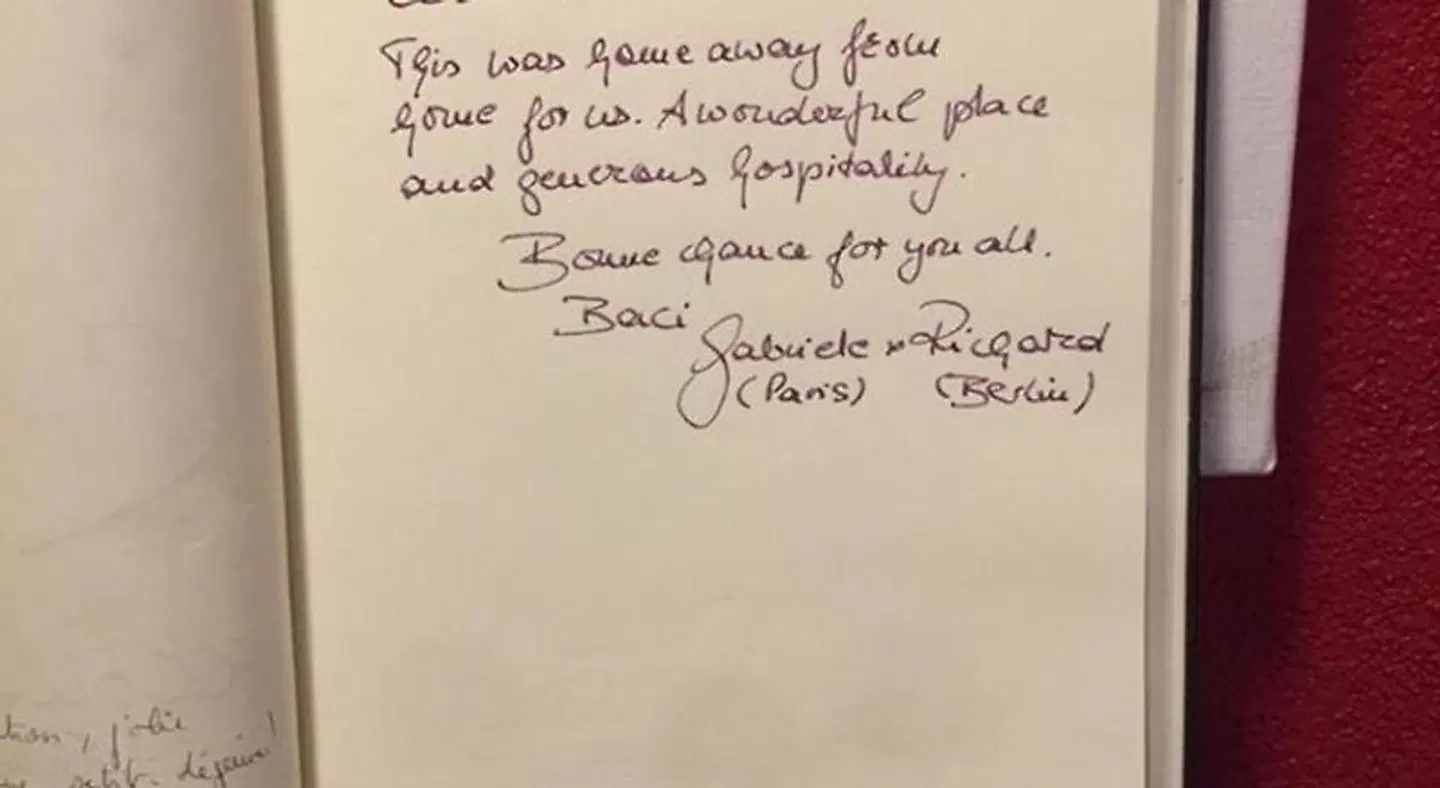 This was home away from
home for us. A wonderful place
and generous hospitality.
Bonne chance for you all.
Baci
Gabriele + Richard
(Paris) (Berlin)
jolie
petit-déjeuner!